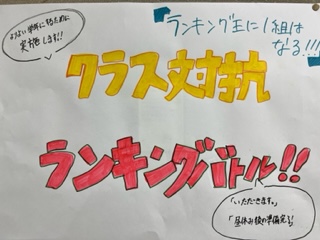 よりよい学年にするために
実施します!!
ランキング王に1組は
なる!!!
クラス対抗
ランキングバトル!!
「いただきます。」
「昼休み後の準備完了」